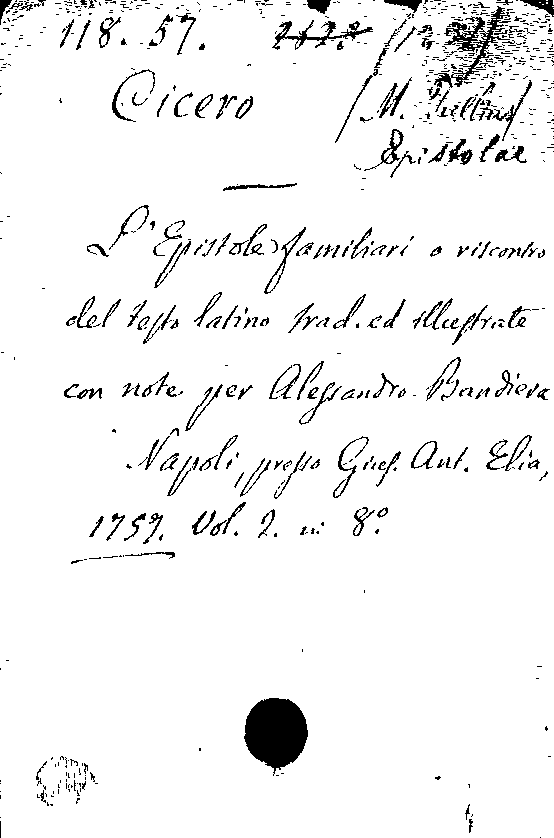 118. 57.
Cicero (M. Tullius)
Epistolae
L'Epistole familiari a riscontro
del testo latino trad. ed illustrate
con note per Alessandro Bandiera
Napoli, presso Gius. Ant. Elia,
1757. Vol. 2. in 8º.